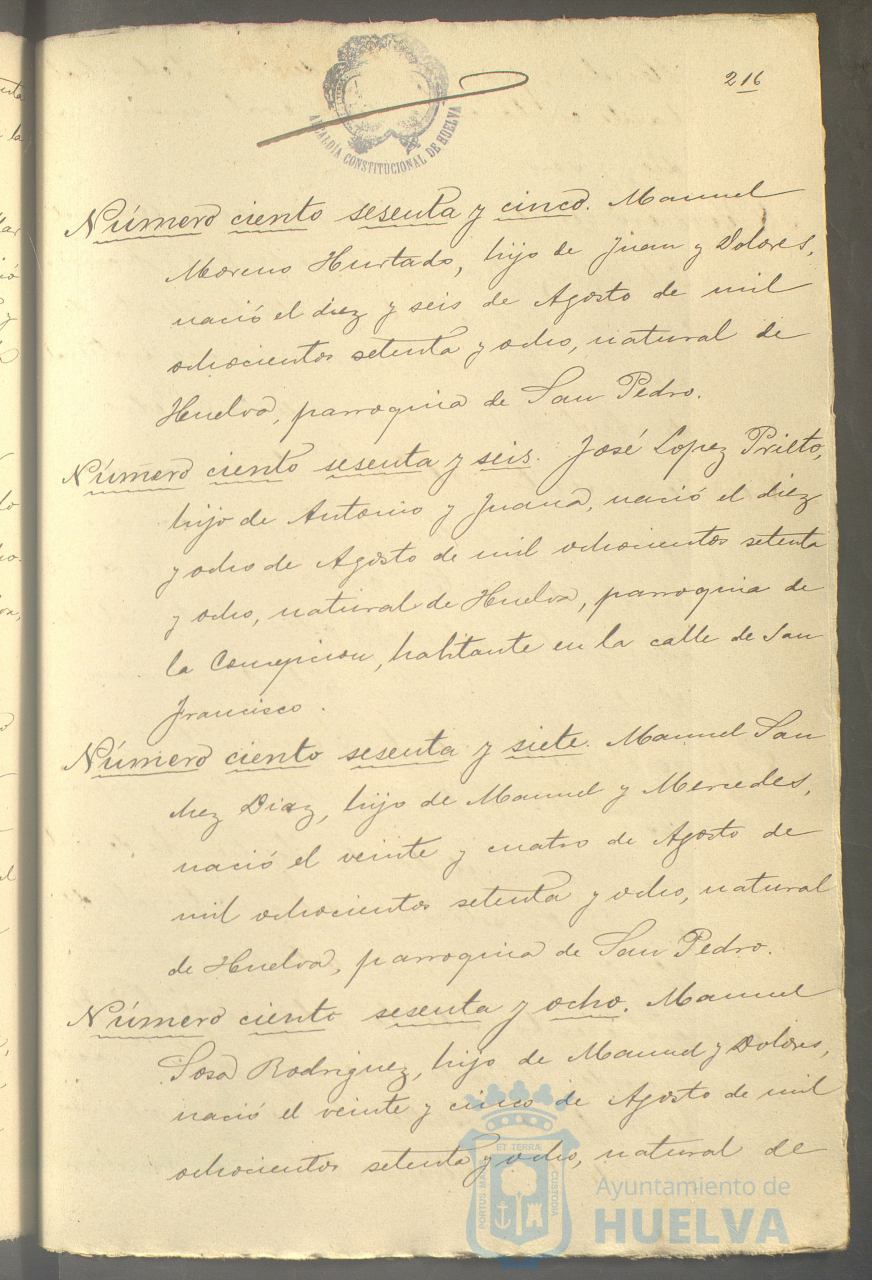 216
ALCALDÍA CONSTITUCIONAL DE HUELVA
Número ciento sesenta y cinco. Manuel
Moreno Hurtado, hijo de Juan y Dolores,
nació el diez y seis de Agosto de mil
ochocientos setenta y ocho, natural de
Huelva, parroquia de San Pedro.
Número ciento sesenta y seis. José Lopez Prieto,
hijo de Antonio y Juana, nació el diez
y ocho de Agosto de mil ochocientos setenta
y ocho, natural de Huelva, parroquia de
la Concepcion, habitante en la calle de San
Francisco.
Número ciento sesenta y siete. Manuel San
chez Diaz, hijo de Manuel y Mercedes,
nació el veinte y cuatro de Agosto de
mil ochocientos setenta y ocho, natural
de Huelva, parroquia de San Pedro.
Número ciento sesenta y ocho. Manuel
Sosa Rodriguez, hijo de Manuel y Dolores,
nació el veinte y cinco de Agosto de mil
ochocientos setenta y ocho, natural de
PORTUS MA ET TERRA CUSTODIA
Ayuntamiento de
HUELVA